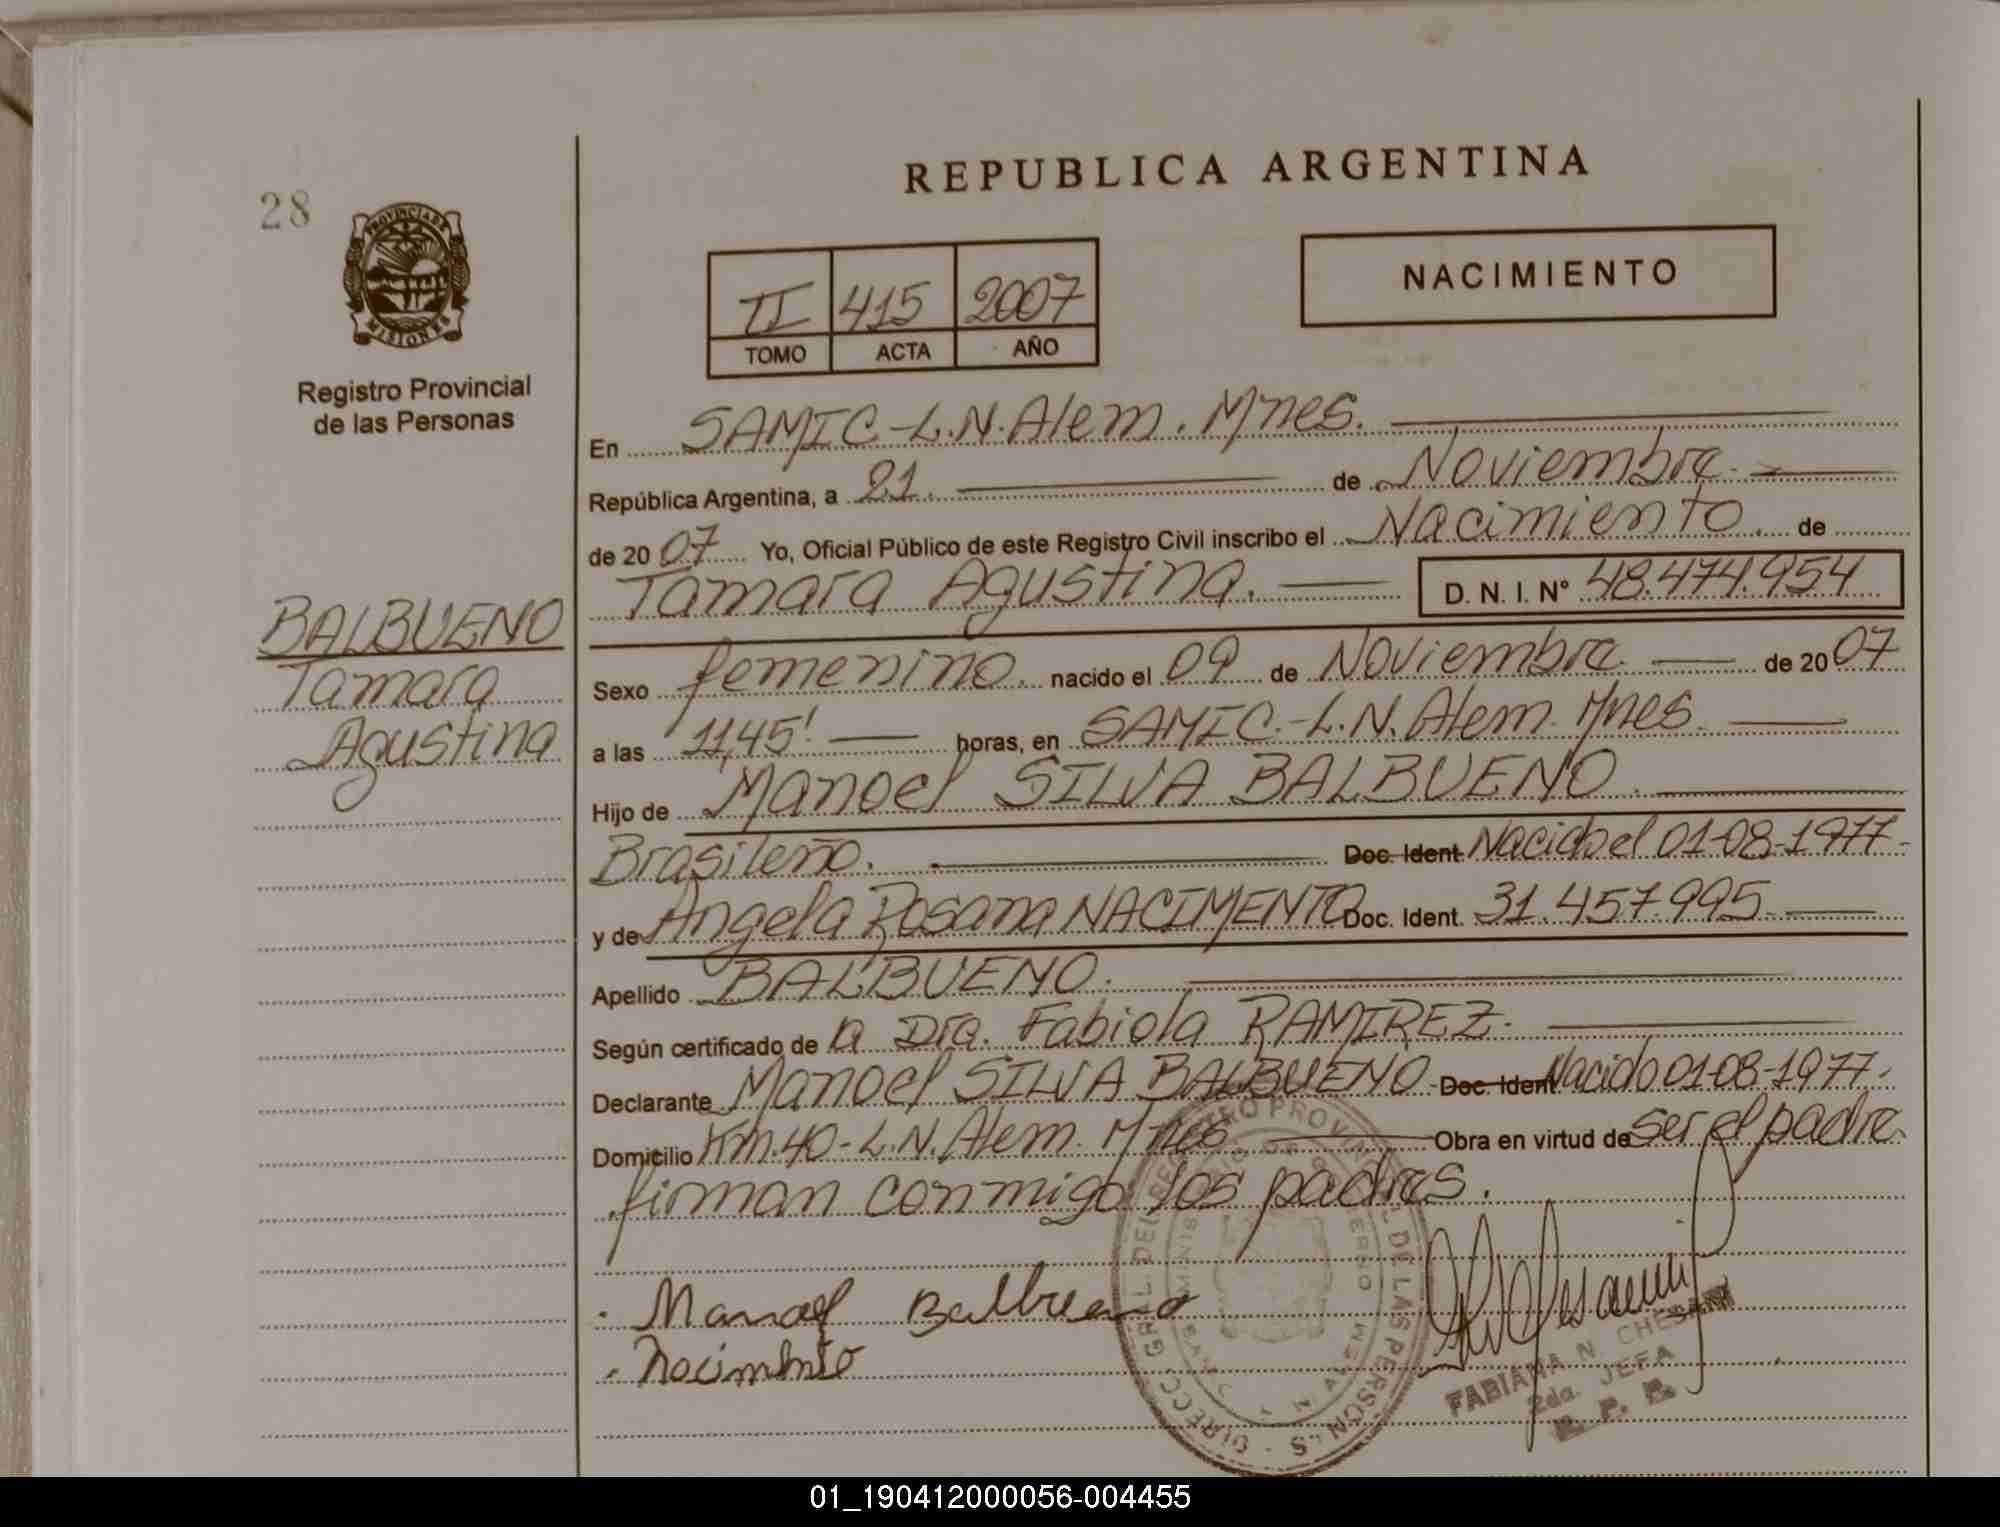 REPUBLICA ARGENTINA
28
PROVINCIA DE
MISIONES
Registro Provincial
de las Personas
II 415 2007
TOMO ACTA AÑO
NACIMIENTO
En SAMIC-L.N.Alem. Mnes.
República Argentina, a 21. de Noviembre.
de 2007 Yo, Oficial Público de este Registro Civil inscribo el Nacimiento. de
Tamara Agustina. D. N. I. N° 48.474.954
BALBUENO
Tamara
Agustina
Sexo femenino. nacido el 09 de Noviembre. de 2007
a las 11,45' horas, en SAMIC.-L.N. Alem. Mnes.
Hijo de Manoel SILVA BALBUENO.
Brasileño. Doc. Ident Nacido el 01-08-1977-
y de Angela Rosana NACIMENTO Doc. Ident. 31.457.995
Apellido BALBUENO.
Según certificado de la Dra. Fabiola RAMIREZ.
Declarante Manoel SILVA BALBUENO Doc. Ident Nacido 01-08-1977.
Domicilio Km.40-L.N. Alem. Mnes Obra en virtud de ser el padre
firman conmigo los padres.
Manoel Balbueno
Nacimento
FABIANA N. CHESANI
2da. JEFA
R. P. P.
01_190412000056-004455